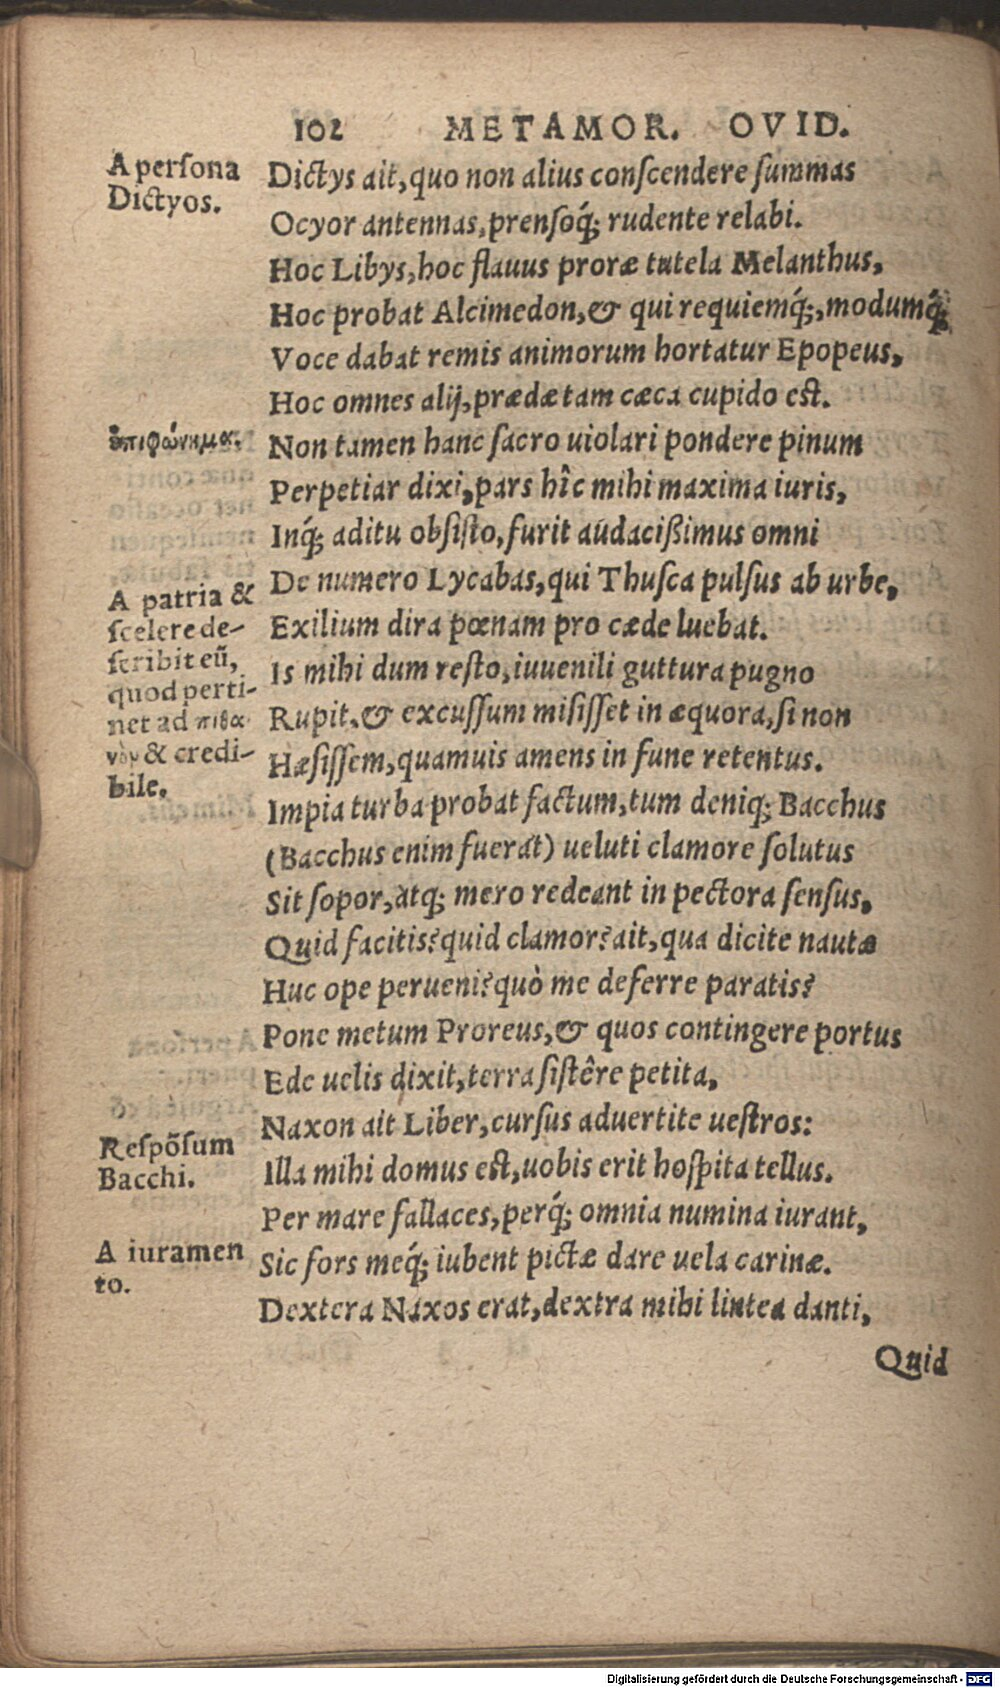 102 METAMOR. OVID.
A persona
Dictyos.
Dictys ait, quo non alius conscendere summas
Ocyor antennas, prensoq́; rudente relabi.
Hoc Libys, hoc flauus proræ tutela Melanthus,
Hoc probat Alcimedon, & qui requiemq́;, modumq́;
Voce dabat remis animorum hortatur Epopeus,
Hoc omnes alij, prædæ tam cæca cupido est.
ἐπιφώνημα.
Non tamen hanc sacro uiolari pondere pinum
Perpetiar dixi, pars hîc mihi maxima iuris,
Inq́; aditu obsisto, furit audacißimus omni
A patria &
scelere de-
scribit eũ,
quod perti-
net ad πιθα
νὸν & credi-
bile.
De numero Lycabas, qui Thusca pulsus ab urbe,
Exilium dira pœnam pro cæde luebat.
Is mihi dum resto, iuuenili guttura pugno
Rupit, & excussum misisset in æquora, si non
Hæsissem, quamuis amens in fune retentus.
Impia turba probat factum, tum deniq; Bacchus
(Bacchus enim fuerat) ueluti clamore solutus
Sit sopor, atq; mero redeant in pectora sensus,
Quid facitis? quid clamor? ait, qua dicite nautæ
Huc ope perueni? quò me deferre paratis?
Pone metum Proreus, & quos contingere portus
Ede uelis dixit, terra sistêre petita,
Naxon ait Liber, cursus aduertite uestros:
Respõsum
Bacchi.
Illa mihi domus est, uobis erit hospita tellus.
Per mare fallaces, perq́; omnia numina iurant,
A iuramen
to.
Sic fors meq́; iubent pictæ dare uela carinæ.
Dextera Naxos erat, dextra mihi lintea danti,
Quid
Digitalisierung gefördert durch die Deutsche Forschungsgemeinschaft - DFG